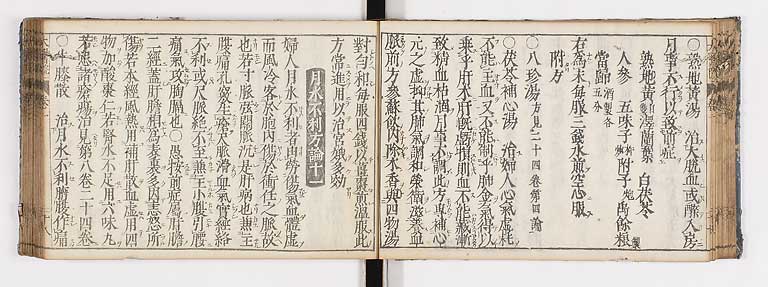 ○熟地黄湯 治大脱血或醉入房
月事不行以致前症
熟地黄 澤蘭葉 白茯苓
人參 五味子 附子炮 禹餘粮製
當歸酒製各五分
右為末每服三錢水煎空心服
附方
○八珍湯方見二十四卷第四論
○茯苓補心湯 治婦人心氣虚耗
不能主血又不能制乎肺金金氣得以
乘乎肝木肝既得損則血不能藏漸
致精血枯涸月事不調此方專補心
元之虚抑其肺氣調和榮衛滋養血
脉前方參蘇飲不木香與四物湯
對勻和每服四錢以薑棗煎温服此
方常進用以治室娥多効
月水不利方論十一
婦人月水不利者由勞傷氣血體虚
而風冷客於胞内傷於衝任之脉故
也若寸脉弦關脉沉是肝病也兼主
腹痛孔竅生瘡尺脉滑血氣實經絡
不利或尺脉絶不至兼主小腹引腰
痛氣攻胸膈也○愚按前症属肝膽
二經蓋肝膽相為表裏多因恚怒所
傷若本經風熱用補肝散血虚用四
物加酸棗仁若腎水不足用六味丸
若患諸瘡瘍治見第八卷二十四卷
○牛膝散 治月水不利臍腹作痛